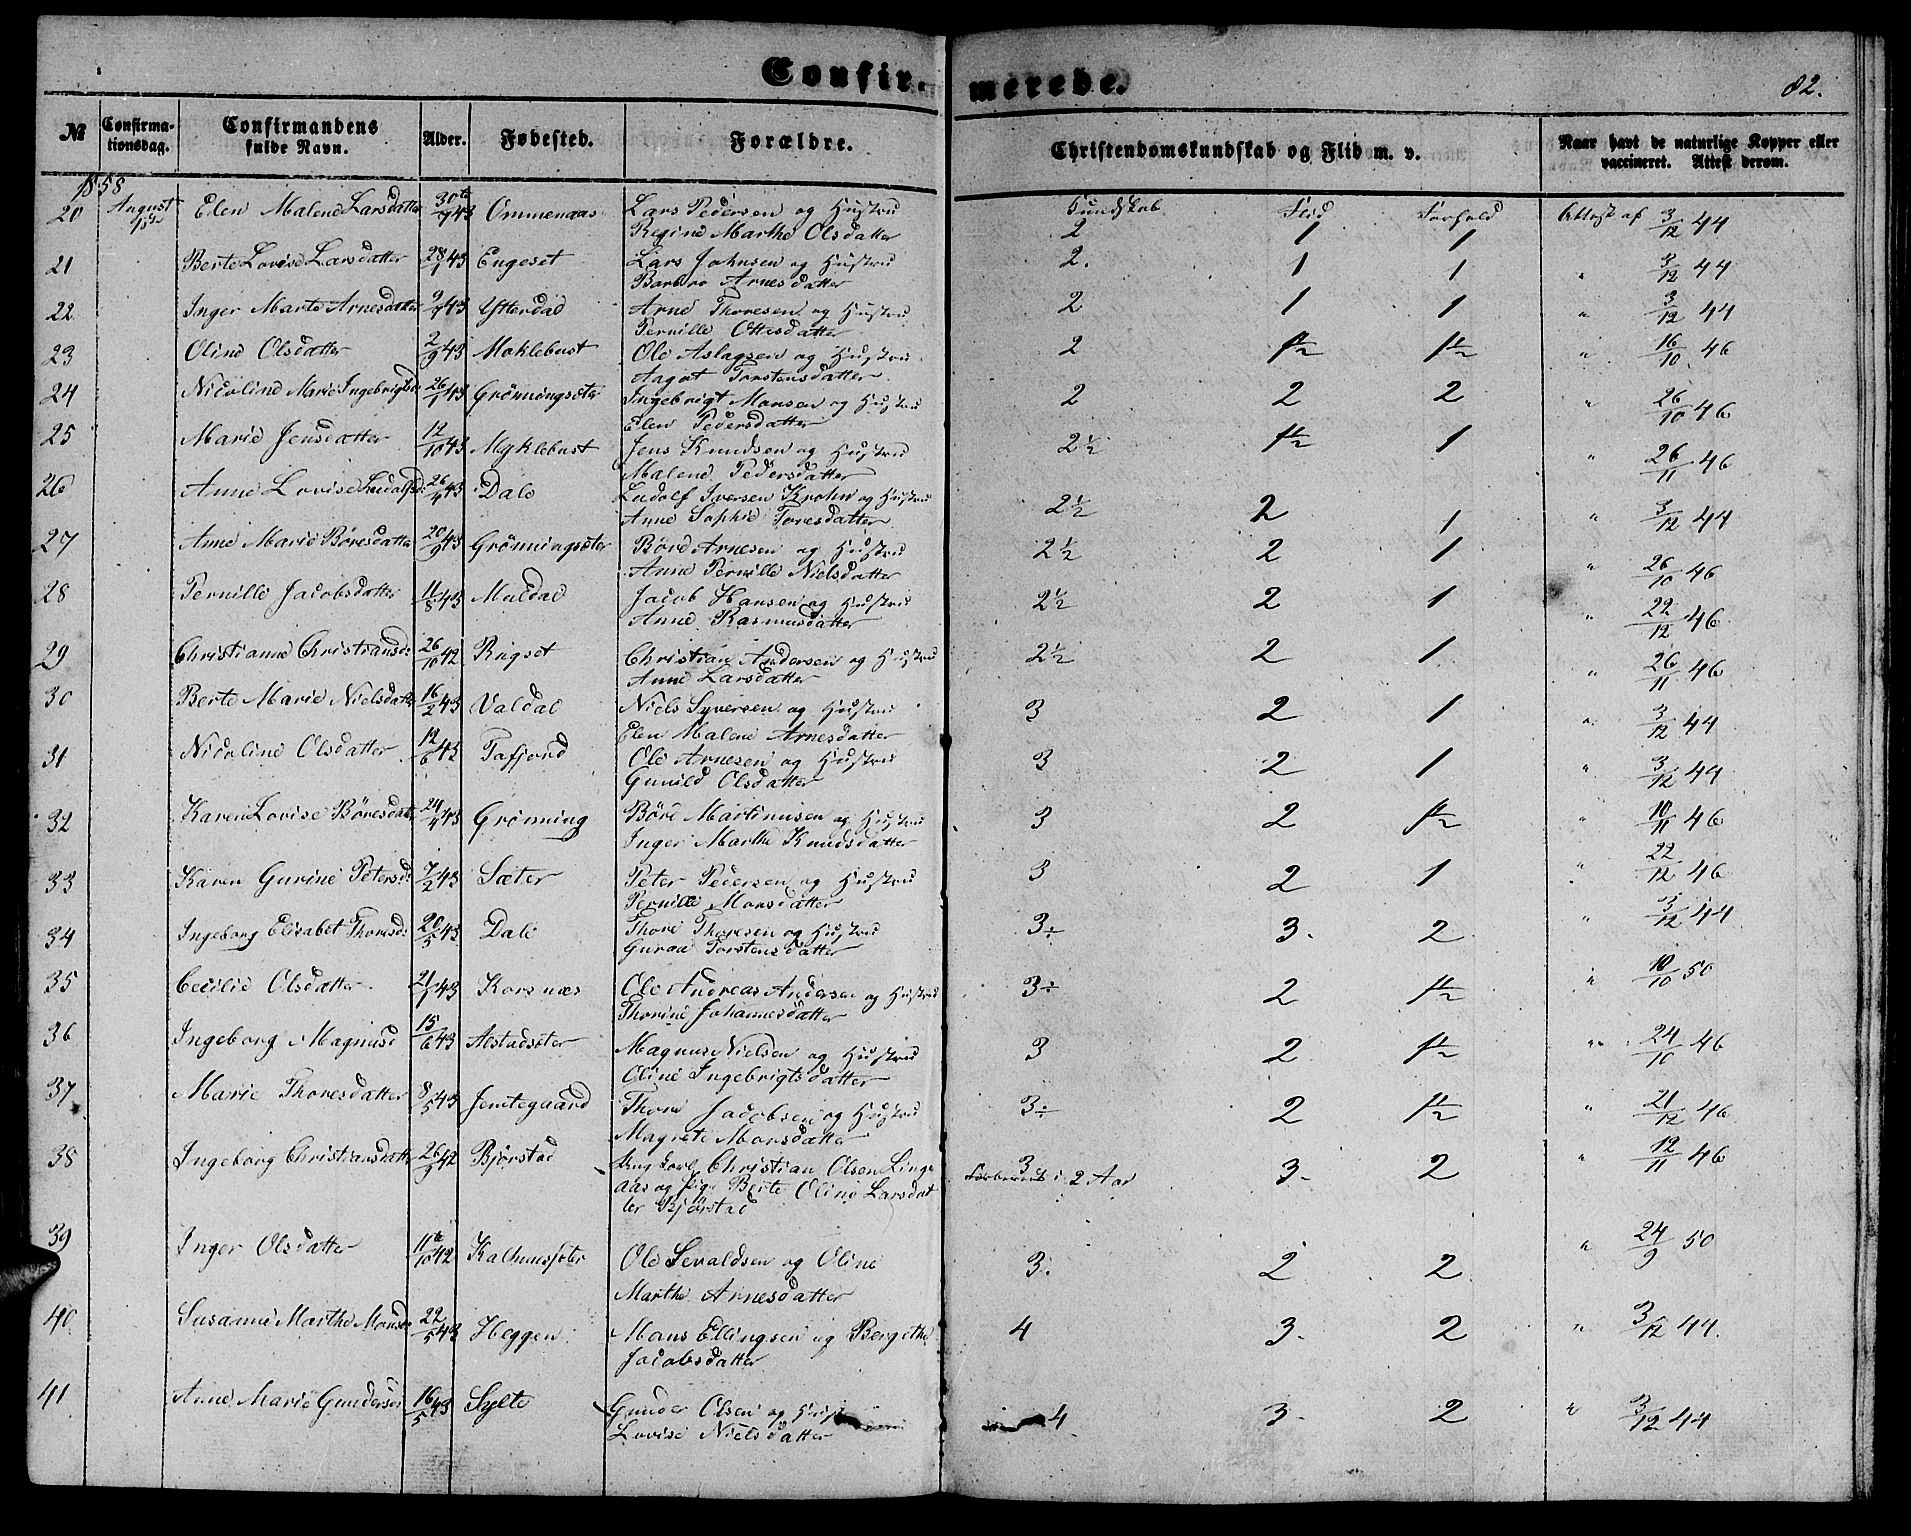 Confir- merede. 82.
№ Confirma-tionsdag. Confirmandens fulde Navn. Alder. Fødested. Forældre. Christendomskundskab og Flid m. v. Naar havt de naturlige Kopper eller vaccineret. Attest derom.
1858
Kundskab Flid Forhold
20 August 15de Elen Malene Larsdatter Ommenaas Lars Pedersen og Hustru 2 1 1 Attest af 3/12 44
Regine Marthe Olsdatter
21 Berte Lovise Larsdatter 28/1 43 Engeset Lars Johnsen og Hustru 2. 1 1 " 3/12 44
Barbro Arnesdatter
22 Inger Marte Arnesdatter Ytterdal Arne Thoresen og Hustru 2 1 1 " 3/12 44
Pernille Ottesdatter
23 Oline Olsdatter 2/9 43 Moklebust Ole Aslagsen og Hustru 2 1½ 1½ " 16/10 46
Aagot Torstensdatter
24 Nicoline Marie Ingebrigtsd. 26/1 43 Grønningsæter Ingebrigt Monsen og Hustru 2 2 2 " 26/10 46
Elen Pedersdatter
25 Marie Jensdatter 12/10 43 Myklebust Jens Knudsen og Hustru 2½ 1½ 1 " 26/11 46
Malene Pedersdatter
26 Anne Lovise Ludolfsd: Dale Ludolf Iversen Krohn og Hustru 2½ 2 1 " 3/12 44
Anne Sophie Toresdatter
27 Anne Marie Børesdatter 20/9 43 Grønningsæter Børe Arnesen og Hustru 2½ 2 1 " 26/10 46
Anne Pernille Nielsdatter
28 Pernille Jacobsdatter 11/8 43 Muldal Jacob Hansen og Hustru 2½ 2 1 " 22/12 46
Anne Rasmusdatter
29 Christianne Christiansd: 26/10 42 Rigset Christian Andersen og Hustru 2½ 2 1 " 26/11 46
Anne Larsdatter
30 Berte Marie Nielsdatter 16/2 43 Valdal Niels Syversen og Hustru 3 2 1 " 3/12 44
Elen Malene Arnesdatter
31 Nicoline Olsdatter 12/6 43 Tafjord Ole Arnesen og Hustru 3 2 1 " 3/12 44
Gunild Olsdatter
32 Karen Lovise Børesdatt. Grønning Børe Martinusen og Hustru 3 2 1½ " 10/11 46
Inger Marthe Knudsdatter
33 Karen Gurine Petersd: 7/2 43 Sæter Peter Pedersen og Hustru 3 2 1 " 22/12 46
Pernille Monsdatter
34 Ingeborg Elisabet Thoresd: 20/5 43 Dale Thore Thoresen og Hustru 3÷ 3. 2 " 3/12 44
Guroe Torstensdatter
35 Cecilie Olsdatter 21/1 43 Korsnæs Ole Andreas Andersen og Hustru 3÷ 2 1½ " 10/10 50
Thorine Johannesdatter
36 Ingeborg Magnusd 15/6 43 Alstadsæter Magnus Nielsen og Hustru 3 2 1½ " 24/10 46
Oline Ingebrigtsdatter
37 Marie Thoresdatter 8/5 43 Jemtegaard Thore Jacobsen og Hustru 3÷ 2 1½ " 21/12 46
Magrete Monsdatter
38 Ingeborg Christiansdatter 26/9 42 Bjørstad Ungkarl Christian Olsen Linge- 3 3. 2 " 12/11 46
aas og Pige Berte Oline Larsdat- Forberedt i 2 Aar
ter Bjørstad
39 Inger Olsdatter 11/10 42 Kalhussæter Ole Sevaldsen og Oline 3. 2 2 " 24/9 50
Marthe Arnesdatter
40 Susanne Marthe Monsd: 22/5 43 Heggen Mons Ellingsen og Bergithe 4 3. 2 " 3/12 44.
Jacobsdatter
41 Anne Marie Gundersd: 16/5 43 Sylte Gunder Olsen og Hust 4 3. 2 " 3/12 44
Lovise Nielsdatter